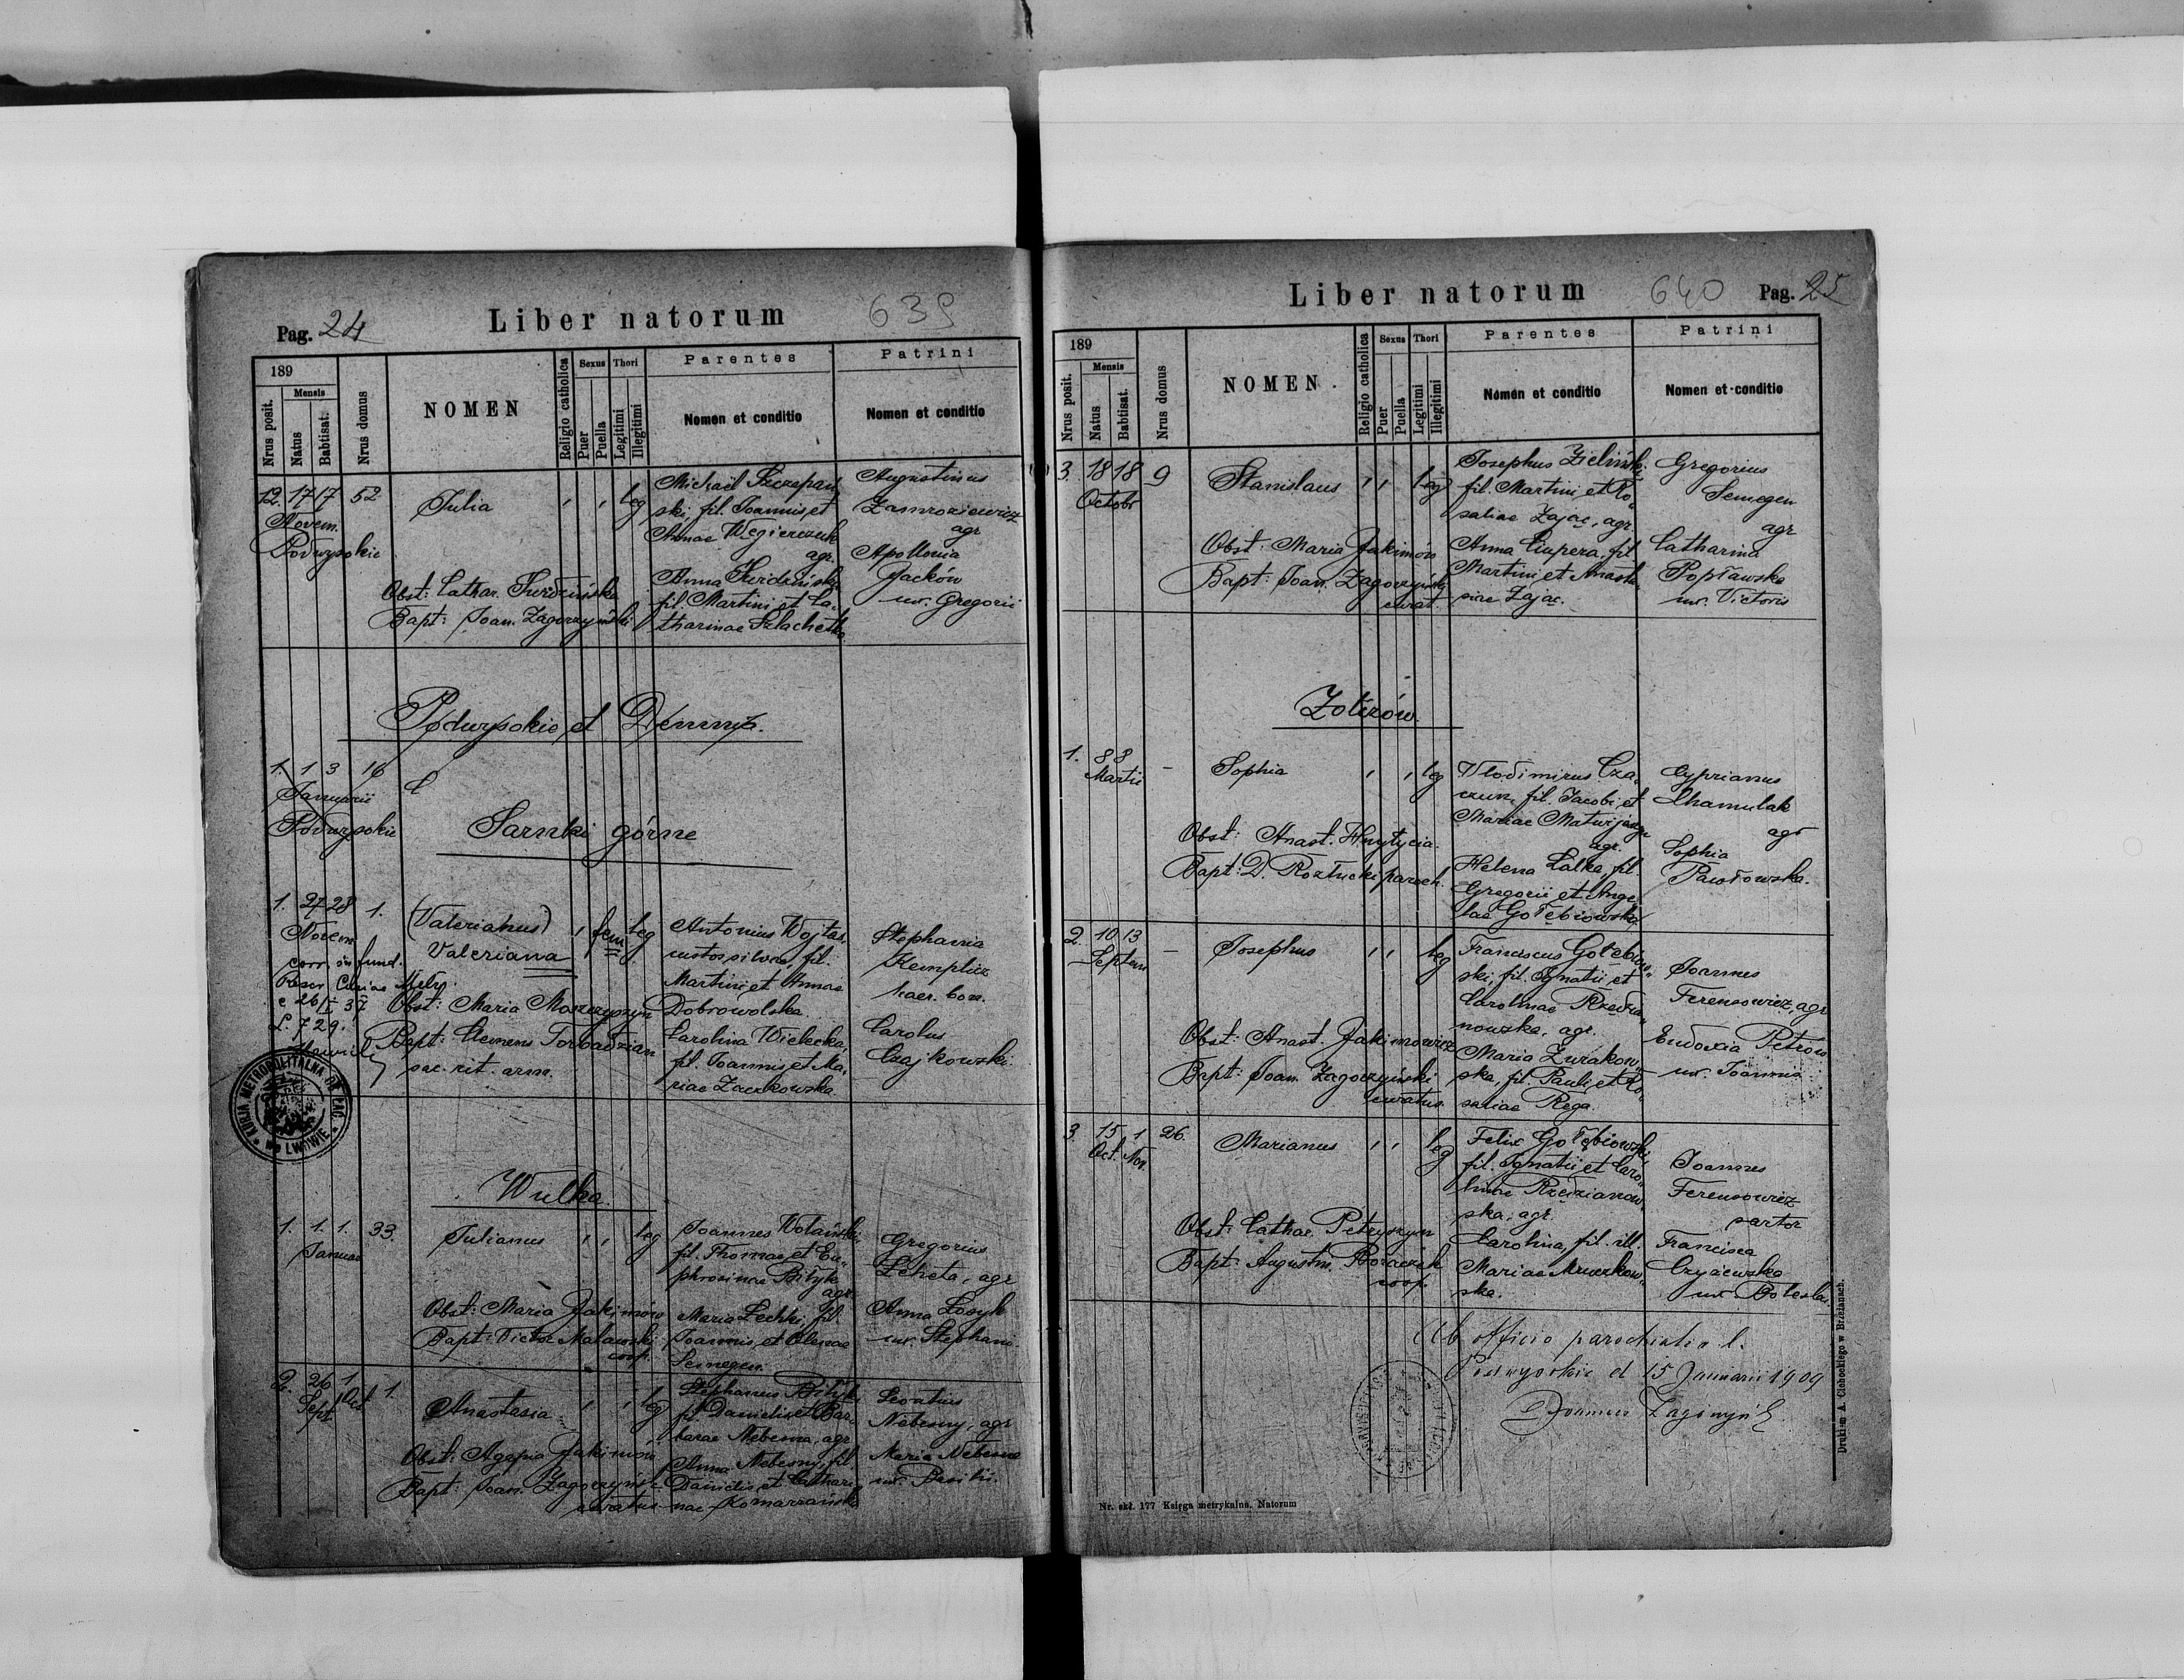 Pag. 24
Liber natorum
639
189
Nrus posit.
Mensis
Natus
Babtisat.
Nrus domus
NOMEN
Religio catholica
Sexus
Puer
Puella
Thori
Legitimi
Illegitimi
Parentes
Nomen et conditio
Patrini
Nomen et conditio
12. 17 17 52
Novem.
Podwysokie
Julia
leg
Michaël Szczepań
ski, fil. Joannis, et
Annae Węgierczuk
agr.
Anna Świdzińska
fil. Martini et Ca
tharinae Szlachetka
Augustinus
Zamroziewicz
agr
Apollonia
Jacków
ux. Gregorii
Obst: Cathar. Świdzińska
Bapt: Joan. Zagórzyński
Podwysokie et
1. 1 3 16
Januarii
Podwysokie
Sarnki górne
1. 27 28 1.
Novem
corr. in fund.
Rescr. Curiae Metr.
e 26/I 37
L. 729.
(Valerianus)
Valeriana
fem leg
Antonius Wojtas,
custos silvae, fil.
Martini et Annae
Dobrowolska.
Carolina Wielecka,
fil. Joannis et Ma
riae Zaczkowska
Stephania
Kemplicz
haer. bon.
Carolus
Czajkowski.
Obst: Maria Moszczyszyn
Bapt: Clemens Torbadzian
sac. rit. arm.
KURJA METROPOLITALNA OB. ŁAC.
we LWOWIE
Wulka
1. 1. 1. 33.
Januar
Julianus
leg
Joannes Wolański,
fil. Thomae et Eu
phrosinae Biłyk
agr
Maria Lechki, fil.
Joannis et Olenae
Semegen.
Gregorius
Leheta, agr
Anna Łosyk
ux. Stephani
Obst: Maria Jakimów
Bapt: Victor Malawski
coop.
2. 26 1 1.
Sept Oct
Anastasia
leg
Stephanus Biłyk,
fil. Danielis et Bar
barae Nebesna, agr
Anna Nebesny, fil
Danielis et Cathari
nae Komarzańska
Leontius
Nebesny, agr
Maria Nebesna
ux. Basilii.
Obst: Agapia Jakimów
Bapt: Joan. Zagórzyński
curatus.
Liber natorum
640
Pag. 25
189
Nrus posit.
Mensis
Natus
Babtisat.
Nrus domus
NOMEN
Religio catholica
Sexus
Puer
Puella
Thori
Legitimi
Illegitimi
Parentes
Nomen et conditio
Patrini
Nomen et conditio
3. 18 18 9
Octobr
Stanislaus
leg
Josephus Zieliński
fil. Martini et Ro
saliae Zając, agr
Anna Ciupera, fil
Martini et Anasta
siae Zając.
Gregorius
Semegen
agr
Catharina
Popławska
ux. Victoris
Obst: Maria Jakimów
Bapt: Joan. Zagórzyński
curat.
Żołczów.
1. 8 8 -
Martii
Sophia
leg
Wlodimirus Cza
czun, fil. Jacobi et
Mariae
agr.
Helena Łatka, fil.
Gregorii et Ange
lae Gołębiowska
Cyprianus
Chamulak
agr
Sophia
Pawłowska.
Obst: Anast. Hnytycia.
Bapt: D. Roztucki paroch.
2. 10 13 -
Septem
Josephus
leg
Franciscus Gołębiow
ski, fil. Ignatii et
Carolinae Rzedzia
nowska, agr.
Maria Żurakow
ska, fil. Pauli et Ro
saliae Rega.
Joannes
Ferensowicz, agr
Eudoxia Petrów
ux. Joannis
Obst: Anast. Jakimowicz
Bapt: Joan. Zagórzyński
curatus.
3. 15 1 26.
Oct. Nov.
Marianus
leg
Felix Gołębiowski,
fil. Ignatii et Caro
linae Rzedzianow
ska, agr.
Carolina, fil. ill.
Mariae Mrozkow
ska.
Joannes
Ferensowicz
sartor
Francisca
Czyżewska
ux. Boleslai.
Obst: Cathar. Petryszyn
Bapt: Augustin. Boraczek
coop.
Ab officio parochiali r. l.
Podwysokie d 15 Januarii 1909
Joannes Zagórzyński
Nr. skł. 177 Księga metrykalna. Natorum
Drukiem A. Cichockiego w Brzeżanach.